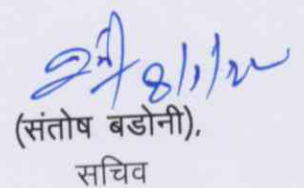 8/1/22
(संतोष बडोनी),
सचिव